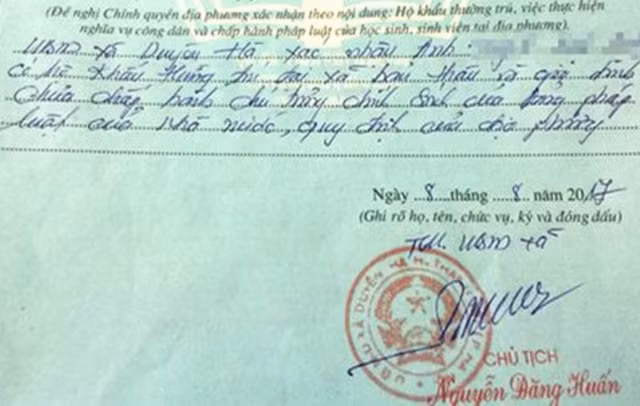 (Đề nghị Chính quyền địa phương xác nhận theo nội dung: Hộ khẩu thường trú, việc thực hiện
nghĩa vụ công dân và chấp hành pháp luật của học sinh, sinh viên tại địa phương).
UBND xã Duyên Hà, xác nhận Anh:
Có hộ khẩu thường trú tại xã và gia đình
Chưa chấp hành chủ trương chính sách của pháp
luật của Nhà nước, quy định của địa phương
Ngày 8 tháng 8 năm 2017
(Ghi rõ họ, tên, chức vụ, ký và đóng dấu)
TM. UBND xã
CHỦ TỊCH
Nguyễn Đăng Huấn